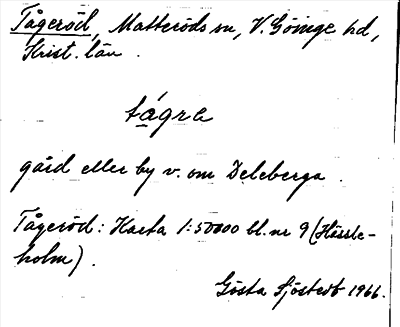 Tågeröd, Matteröds sn, V. Göinge hd,
Krist. län.
tágra
gård eller by v. om Deleberga.
Tågeröd: Karta 1:50000 bl. nr 9 (Hässle-
holm).
Gösta Sjöstedt 1966.